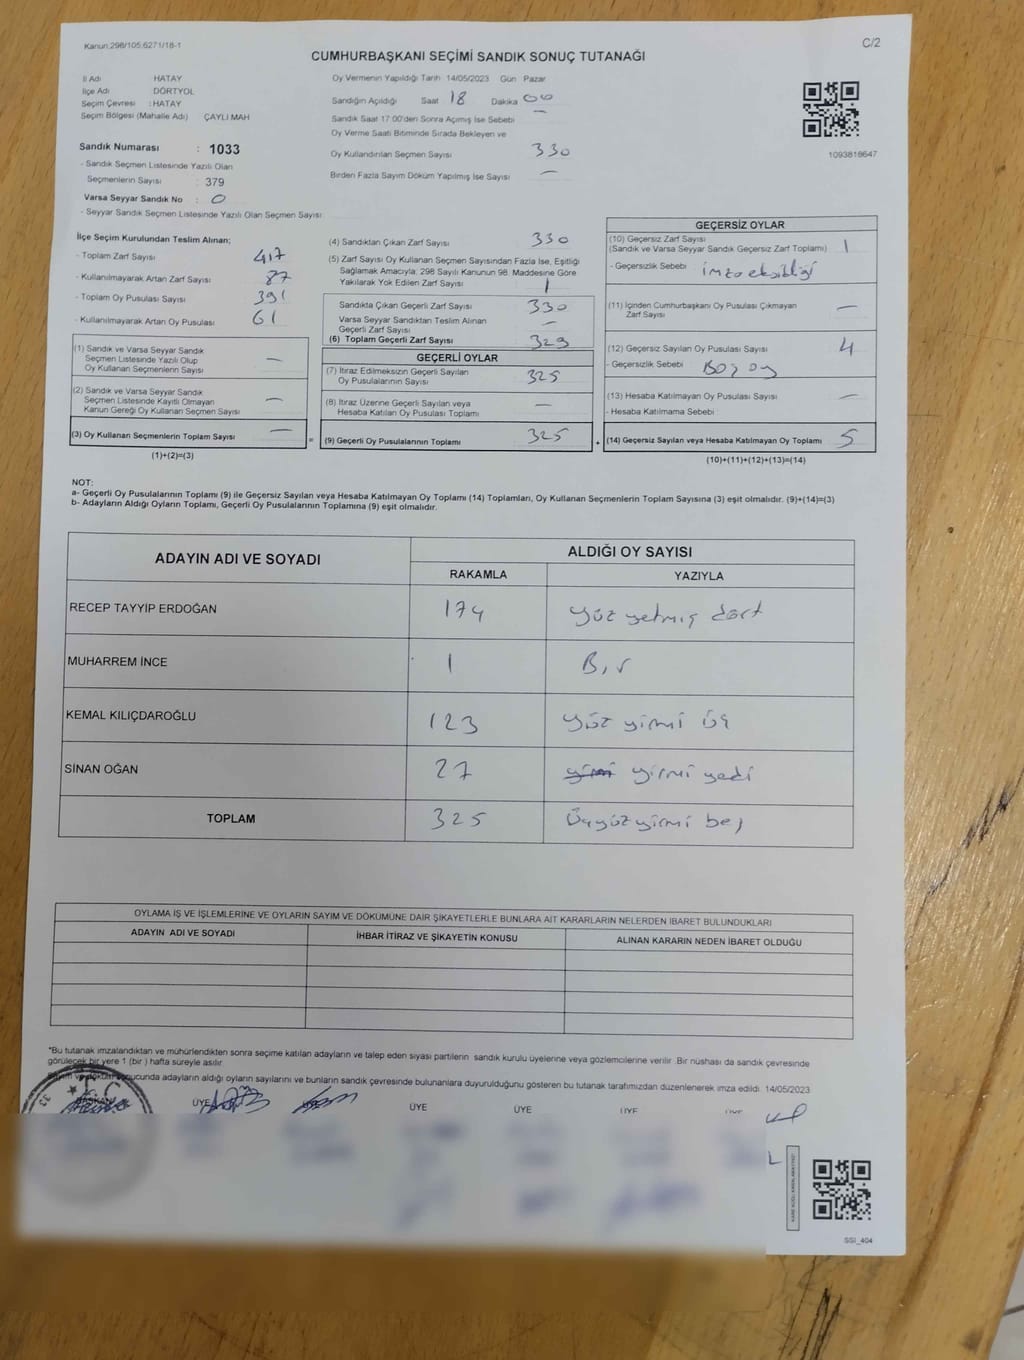 Kanun:298/105,6271/18-1
C/2
CUMHURBAŞKANI SEÇİMİ SANDIK SONUÇ TUTANAĞI
İl Adı HATAY
İlçe Adı DÖRTYOL
Seçim Çevresi : HATAY
Seçim Bölgesi (Mahalle Adı) ÇAYLI MAH
Sandık Numarası : 1033
- Sandık Seçmen Listesinde Yazılı Olan
Seçmenlerin Sayısı : 379
Varsa Seyyar Sandık No : 0
- Seyyar Sandık Seçmen Listesinde Yazılı Olan Seçmen Sayısı
Oy Vermenin Yapıldığı Tarih 14/05/2023 Gün Pazar
Sandığın Açıldığı Saat 18 Dakika 00
Sandık Saat 17.00'den Sonra Açımış İse Sebebi —
Oy Verme Saati Bitiminde Sırada Bekleyen ve
Oy Kullandırılan Seçmen Sayısı 330
Birden Fazla Sayım Döküm Yapılmış İse Sayısı —
1093818647
İlçe Seçim Kurulundan Teslim Alınan;
- Toplam Zarf Sayısı 417
- Kullanılmayarak Artan Zarf Sayısı 87
- Toplam Oy Pusulası Sayısı 391
- Kullanılmayarak Artan Oy Pusulası 61
(1) Sandık ve Varsa Seyyar Sandık
Seçmen Listesinde Yazılı Olup
Oy Kullanan Seçmenlerin Sayısı —
(2) Sandık ve Varsa Seyyar Sandık
Seçmen Listesinde Kayıtlı Olmayan
Kanun Gereği Oy Kullanan Seçmen Sayısı —
(3) Oy Kullanan Seçmenlerin Toplam Sayısı —
(1)+(2)=(3)
(4) Sandıktan Çıkan Zarf Sayısı 330
(5) Zarf Sayısı Oy Kullanan Seçmen Sayısından Fazla İse, Eşitliği
Sağlamak Amacıyla; 298 Sayılı Kanunun 98. Maddesine Göre
Yakılarak Yok Edilen Zarf Sayısı 1
Sandıkta Çıkan Geçerli Zarf Sayısı 330
Varsa Seyyar Sandıktan Teslim Alınan
Geçerli Zarf Sayısı —
(6) Toplam Geçerli Zarf Sayısı 329
GEÇERLİ OYLAR
(7) İtiraz Edilmeksizin Geçerli Sayılan
Oy Pusulalarının Sayısı 325
(8) İtiraz Üzerine Geçerli Sayılan veya
Hesaba Katılan Oy Pusulası Toplamı —
= (9) Geçerli Oy Pusulalarının Toplamı 325 +
GEÇERSİZ OYLAR
(10) Geçersiz Zarf Sayısı
(Sandık ve Varsa Seyyar Sandık Geçersiz Zarf Toplamı) 1
- Geçersizlik Sebebi imza eksikliği
(11) İçinden Cumhurbaşkanı Oy Pusulası Çıkmayan
Zarf Sayısı —
(12) Geçersiz Sayılan Oy Pusulası Sayısı 4
- Geçersizlik Sebebi Boş oy
(13) Hesaba Katılmayan Oy Pusulası Sayısı —
- Hesaba Katılmama Sebebi
(14) Geçersiz Sayılan veya Hesaba Katılmayan Oy Toplamı 5
(10)+(11)+(12)+(13)=(14)
NOT:
a- Geçerli Oy Pusulalarının Toplamı (9) ile Geçersiz Sayılan veya Hesaba Katılmayan Oy Toplamı (14) Toplamları, Oy Kullanan Seçmenlerin Toplam Sayısına (3) eşit olmalıdır. (9)+(14)=(3)
b- Adayların Aldığı Oyların Toplamı, Geçerli Oy Pusulalarının Toplamına (9) eşit olmalıdır.
ADAYIN ADI VE SOYADI ALDIĞI OY SAYISI
RAKAMLA YAZIYLA
RECEP TAYYİP ERDOĞAN 174 yüz yetmiş dört
MUHARREM İNCE 1 Bir
KEMAL KILIÇDAROĞLU 123 yüz yirmi üç
SİNAN OĞAN 27 yirmi yedi
TOPLAM 325 Üçyüzyirmi beş
OYLAMA İŞ VE İŞLEMLERİNE VE OYLARIN SAYIM VE DÖKÜMÜNE DAİR ŞİKAYETLERLE BUNLARA AİT KARARLARIN NELERDEN İBARET BULUNDUKLARI
ADAYIN ADI VE SOYADI İHBAR İTİRAZ VE ŞİKAYETİN KONUSU ALINAN KARARIN NEDEN İBARET OLDUĞU
*Bu tutanak imzalandıktan ve mühürlendikten sonra seçime katılan adayların ve talep eden siyasi partilerin sandık kurulu üyelerine veya gözlemcilerine verilir. Bir nüshası da sandık çevresinde
görülecek bir yere 1 (bir ) hafta süreyle asılır.
Sayım ve döküm sonucunda adayların aldığı oyların sayılarını ve bunların sandık çevresinde bulunanlara duyurulduğunu gösteren bu tutanak tarafımızdan düzenlenerek imza edildi. 14/05/2023
BAŞKAN ÜYE ÜYE ÜYE ÜYE ÜYE
T.C.
SSİ_404